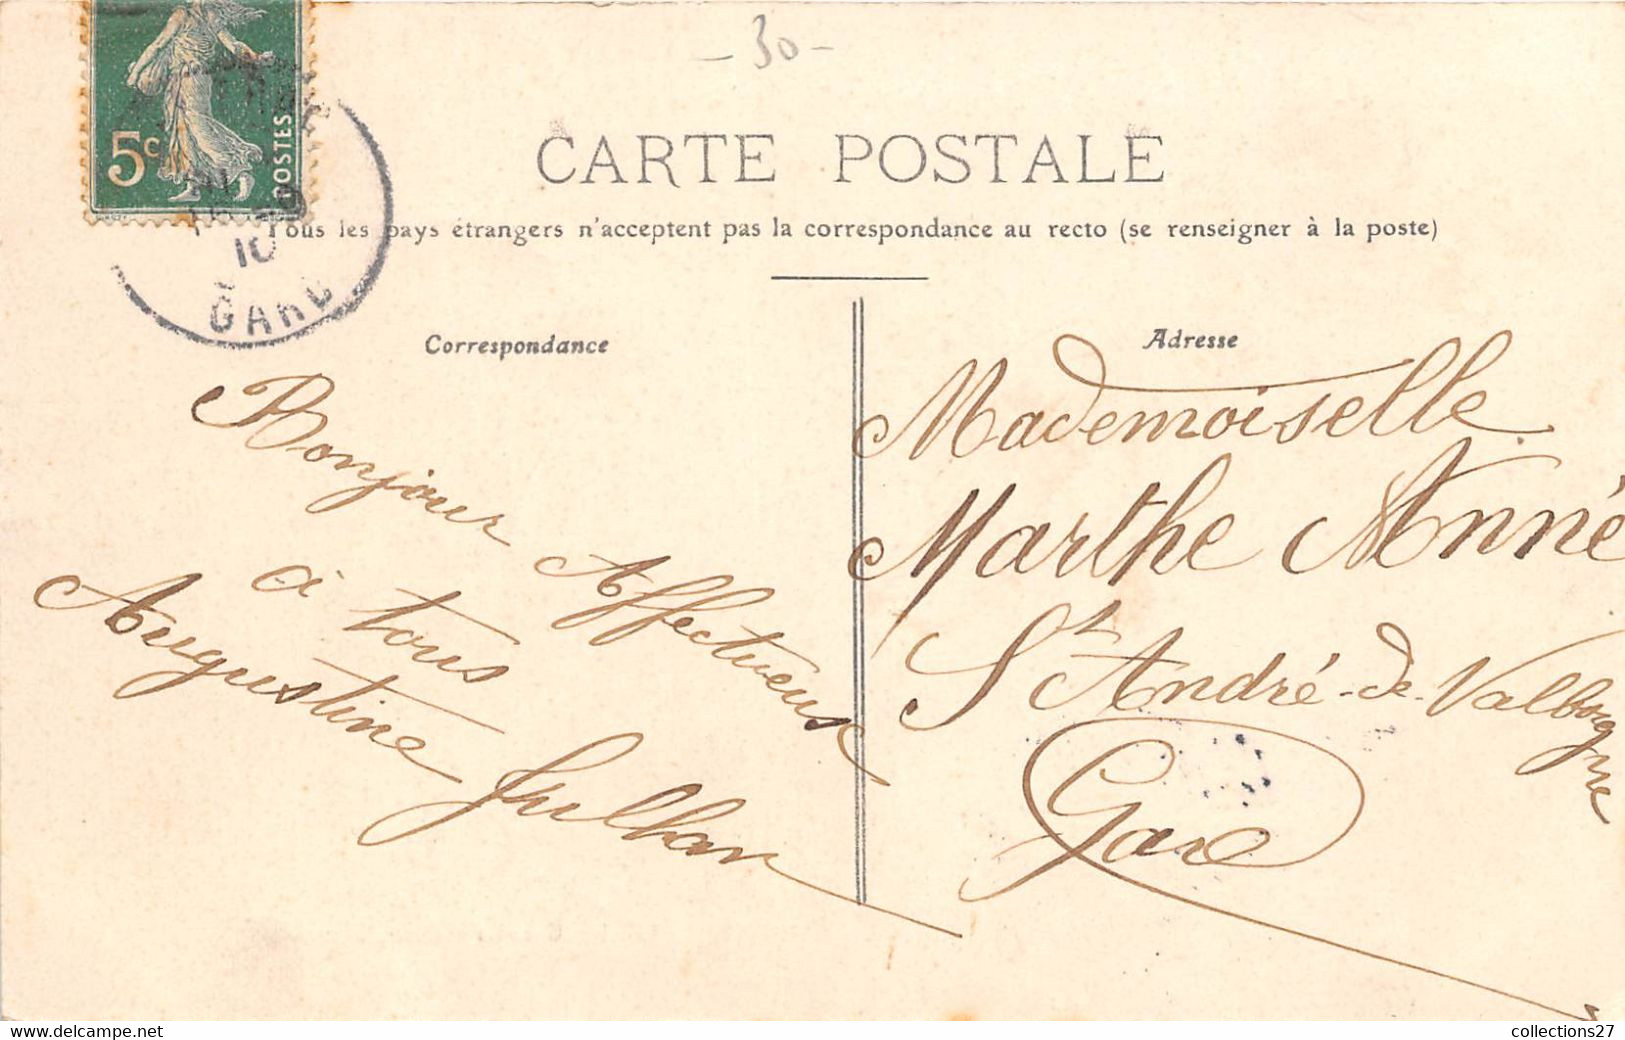 - 30 -
5c
POSTES
CARTE POSTALE
Tous les pays étrangers n'acceptent pas la correspondance au recto (se renseigner à la poste)
10
GARD
Correspondance
Bonjour Affectueux
à tous
Augustine Jullian
Adresse
Mademoiselle
Marthe Anné
St André-de-Valborgne
Gard
collections27